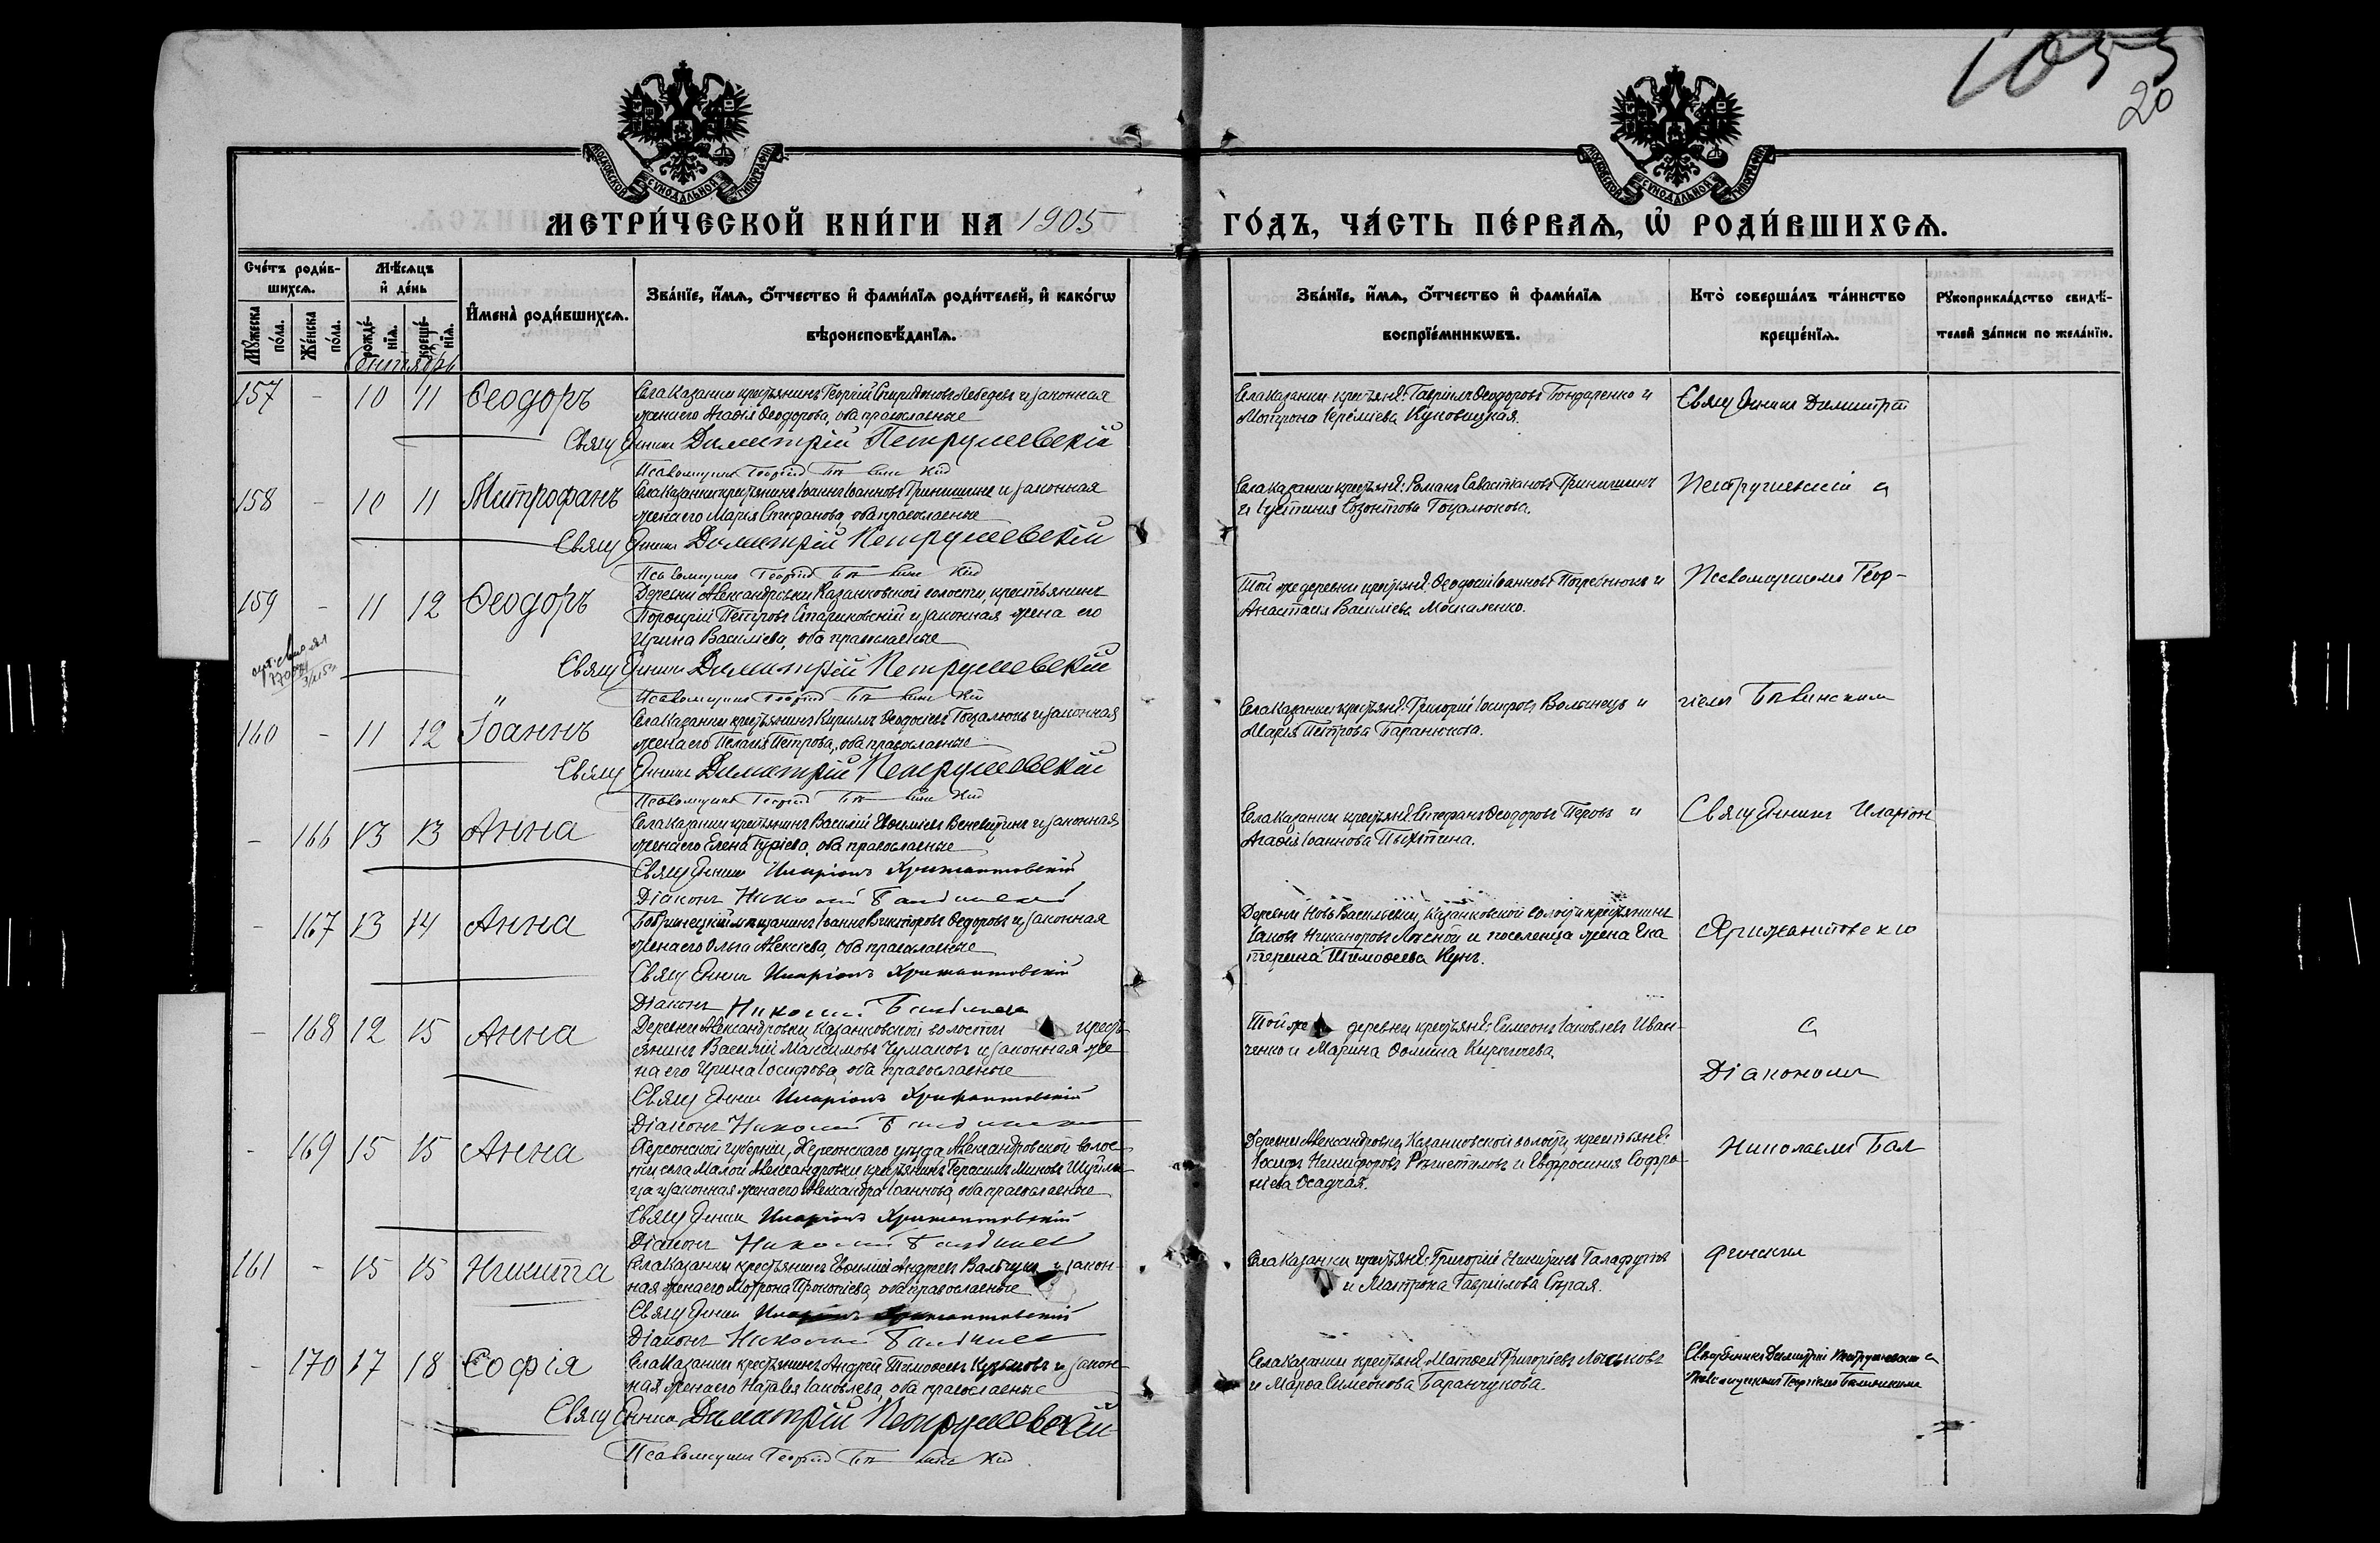 1055
20
МОСКОВСКОЙ СУНОДАЛЬНОЙ ТИПОГРАФІИ
МОСКОВСКОЙ СУНОДАЛЬНОЙ ТИПОГРАФІИ
МЕТРИ́ЧЕСКОЙ КНИ́ГИ НА 1905 ГО́ДЪ, ЧА́СТЬ ПЕ́РВАѦ, Ѡ҆ РОДИ́ВШИХСѦ.
Сче́тъ роди́в-
шихсѧ.
Мꙋ́жеска по́ла.
Же́нска по́ла.
Мѣ́сѧцъ
и҆ де́нь
рожде́-нїѧ.
креще́-нїѧ.
И҆мена̀ роди́вшихсѧ.
Зва́нїе, и҆́мѧ, ѻ҆́тчество и҆ фами́лїѧ роди́телей, и҆ како́гѡ
вѣроисповѣ́данїѧ.
Зва́нїе, и҆́мѧ, ѻ҆́тчество и҆ фами́лїѧ
воспрїе́мникѡвъ.
Кто̀ соверша́лъ та́инство
креще́нїѧ.
Рꙋкоприкла́дство свидѣ́-
телей за́писи по жела́нїю.
Сентябрь
157 - 10 11 Ѳеодоръ
Села Казанки крестьянинъ Георгій Спиридоновъ Лебедевъ и законная
жена его Агафія Ѳеодорова, оба православные
Священникъ Димитрій Петрушевскій
Псаломщикъ Георгій
Села Казанки крестьяне: Гавріилъ Ѳеодоровъ Бондаренко и
Мотрона Іереміева Куновицкая.
Священникъ Димитрій
158 - 10 11 Митрофанъ
Села Казанки крестьянинъ Іоаннъ Іоанновъ Гринишинъ и законная
жена его Марія Стефанова, оба православные
Священникъ Димитрій Петрушевскій
Псаломщикъ Георгій
Села Казанки крестьяне: Романъ Савастіановъ Гринишинъ
и Іустинія Созонтова Гоцалюкова.
Петрушевскій съ
159 - 11 12 Ѳеодоръ
Деревни Александровки Казанковской волости, крестьянинъ
Порфирій Петровъ Стариковскій и законная жена его
Ирина Василіева, оба православные
Священникъ Димитрій Петрушевскій
Псаломщикъ Георгій
Той же деревни крестьяне: Ѳеодосій Іоанновъ Погребнюкъ и
Анастасія Василіева Москаленко.
Псаломщикомъ Геор-
160 - 11 12 Іоаннъ
Села Казанки крестьянинъ Кириллъ Ѳеодосіевъ Гоцалюкъ и законная
жена его Пелагія Петрова, оба православные
Священникъ Димитрій Петрушевскій
Псаломщикъ Георгій
Села Казанки крестьяне: Григорій Іосифовъ Волынецъ и
Марія Петрова Баранюкова.
гіемъ
- 166 13 13 Анна
Села Казанки крестьянинъ Василій Евфиміевъ Веневитинъ и законная
жена его Елена Гуріева, оба православные
Священникъ Иларіонъ Хрисанѳовскій
Діаконъ Николай
Села Казанки крестьяне: Стефанъ Ѳеодоровъ Перовъ и
Агафія Іоаннова Пыхтина.
Священникъ Иларіон
- 167 13 14 Анна
Бобринецкій мѣщанинъ Іоаннъ Викторовъ Ѳедоровъ и законная
жена его Ольга Алексіева, оба православные
Священникъ Иларіонъ
Діаконъ Николай
Деревни Ново Васильевки, Казанковской волости крестьянинъ
Іаковъ Никаноровъ Лѣсной и поселенца жена Ека
терина Тимоѳеева Кунъ.
- 168 12 15 Анна
Деревни Александровки, Казанковской волости кресть-
янинъ Василій Максимовъ Чумаковъ и законная же
на его Ирина Іосифова, оба православные
Священникъ Иларіонъ
Діаконъ Николай
Той же деревни крестьяне: Симеонъ Іаковлевъ Иван-
ченко и Марина Ѳомина Кирпичева.
съ
Діакономъ
- 169 15 15 Анна
Херсонской губерніи, Херсонскаго уѣзда Александровской волос-
ти, села Малой Александровки крестьянинъ Герасимъ Миновъ Шуйли
ца и законная жена его Александра Іоаннова, оба православные
Священникъ Иларіонъ
Діаконъ Николай
Деревни Александровки, Казанковской волости, крестьяне:
Іосифъ Никифоровъ Рѣшетиловъ и Евфросинія Софро-
ніева Осадчая.
Николаемъ Бал
161 - 15 15 Никита
Села Казанки крестьянинъ Евфимій Андреевъ Вальчукъ и закон-
ная жена его Мотрона Прокопіева, оба православные
Священникъ Иларіонъ
Діаконъ Николай
Села Казанки крестьяне: Григорій Никитинъ Галафутовъ
и Матрона Гавріилова Сѣрая.
- 170 17 18 Софія
Села Казанки крестьянинъ Андрей Тимоѳеевъ Кузьмовъ и закон-
ная жена его Наталія Іаковлева, оба православные
Священникъ Димитрій Петрушевскій
Псаломщикъ Георгій
Села Казанки крестьяне: Матѳей Григоріевъ Лоськовъ
и Марѳа Симеонова Баранчукова.
Священникъ Димитрій Петрушевскій съ
Псаломщикомъ Георгіемъ